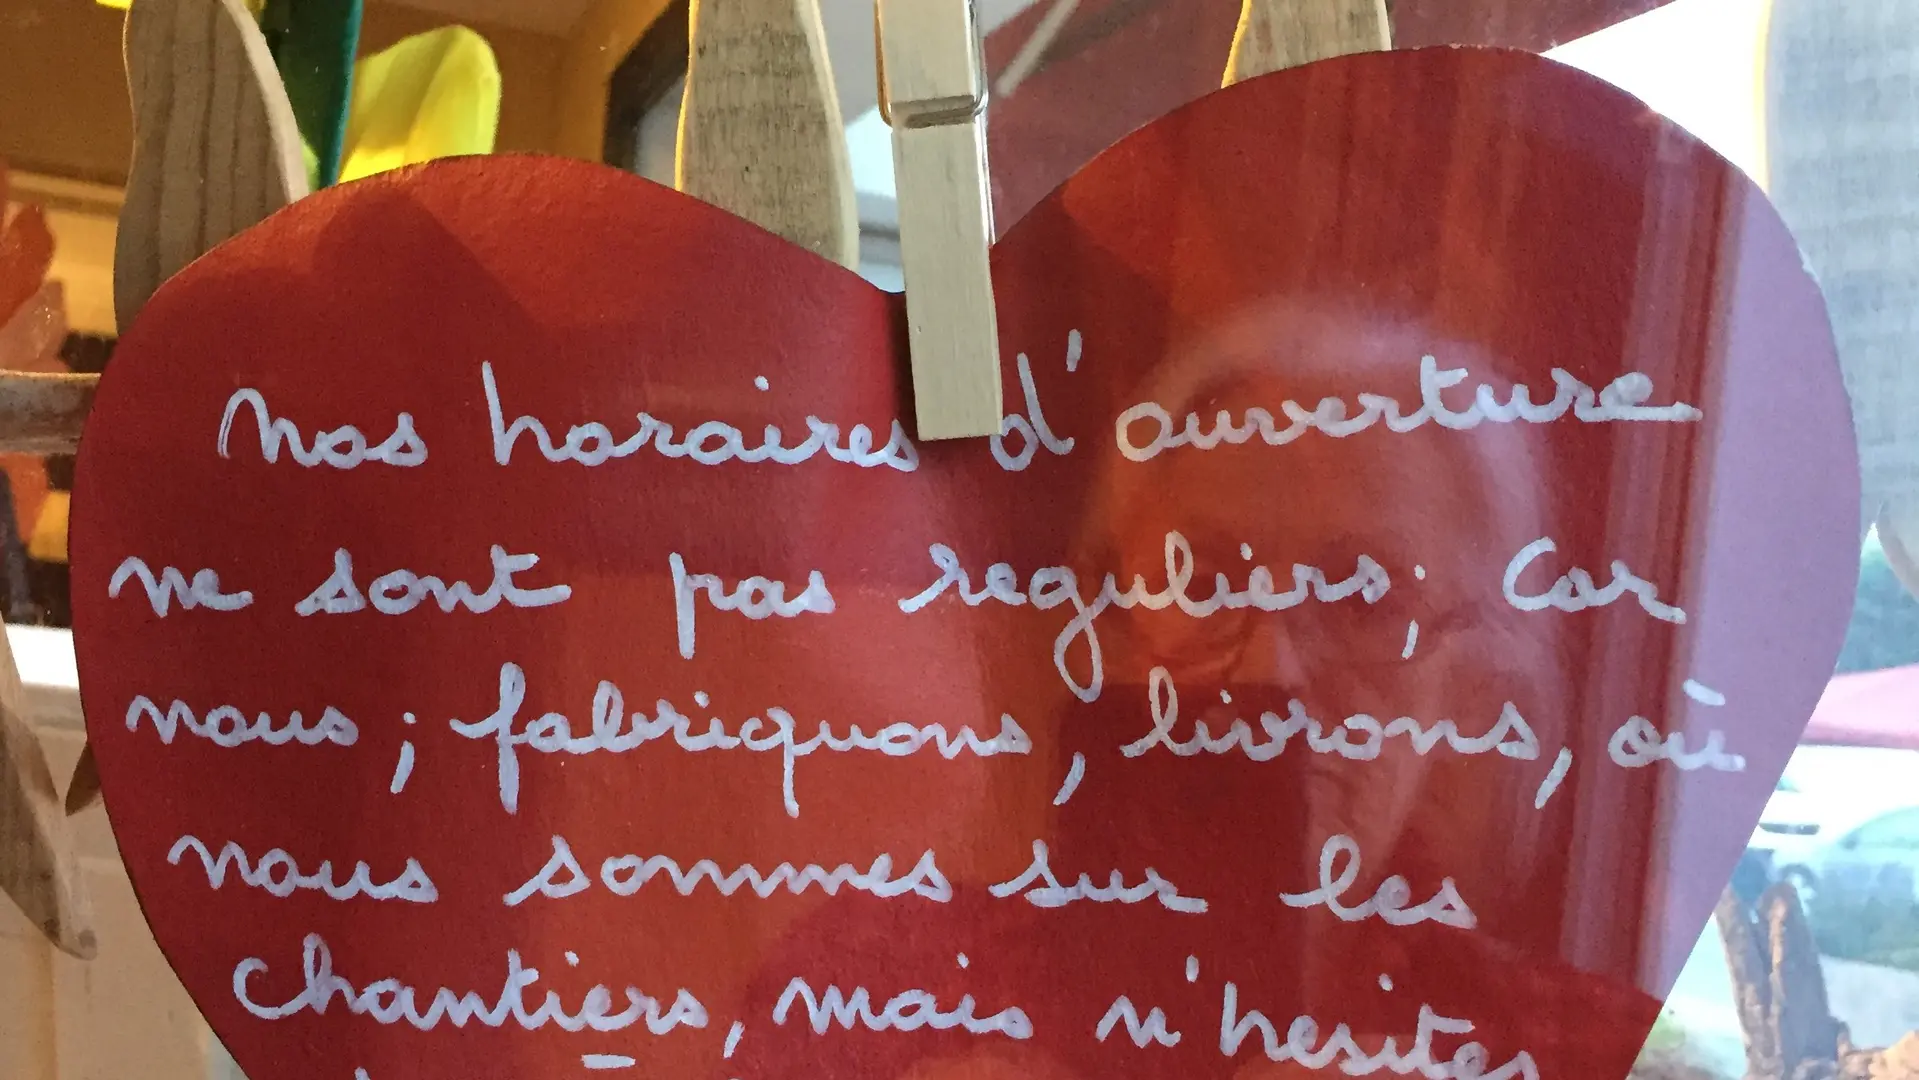 Nos horaires d'ouverture
ne sont pas reguliers, Car
nous ; fabriquons, livrons, où
nous sommes sur les
chantiers, mais n'hesites